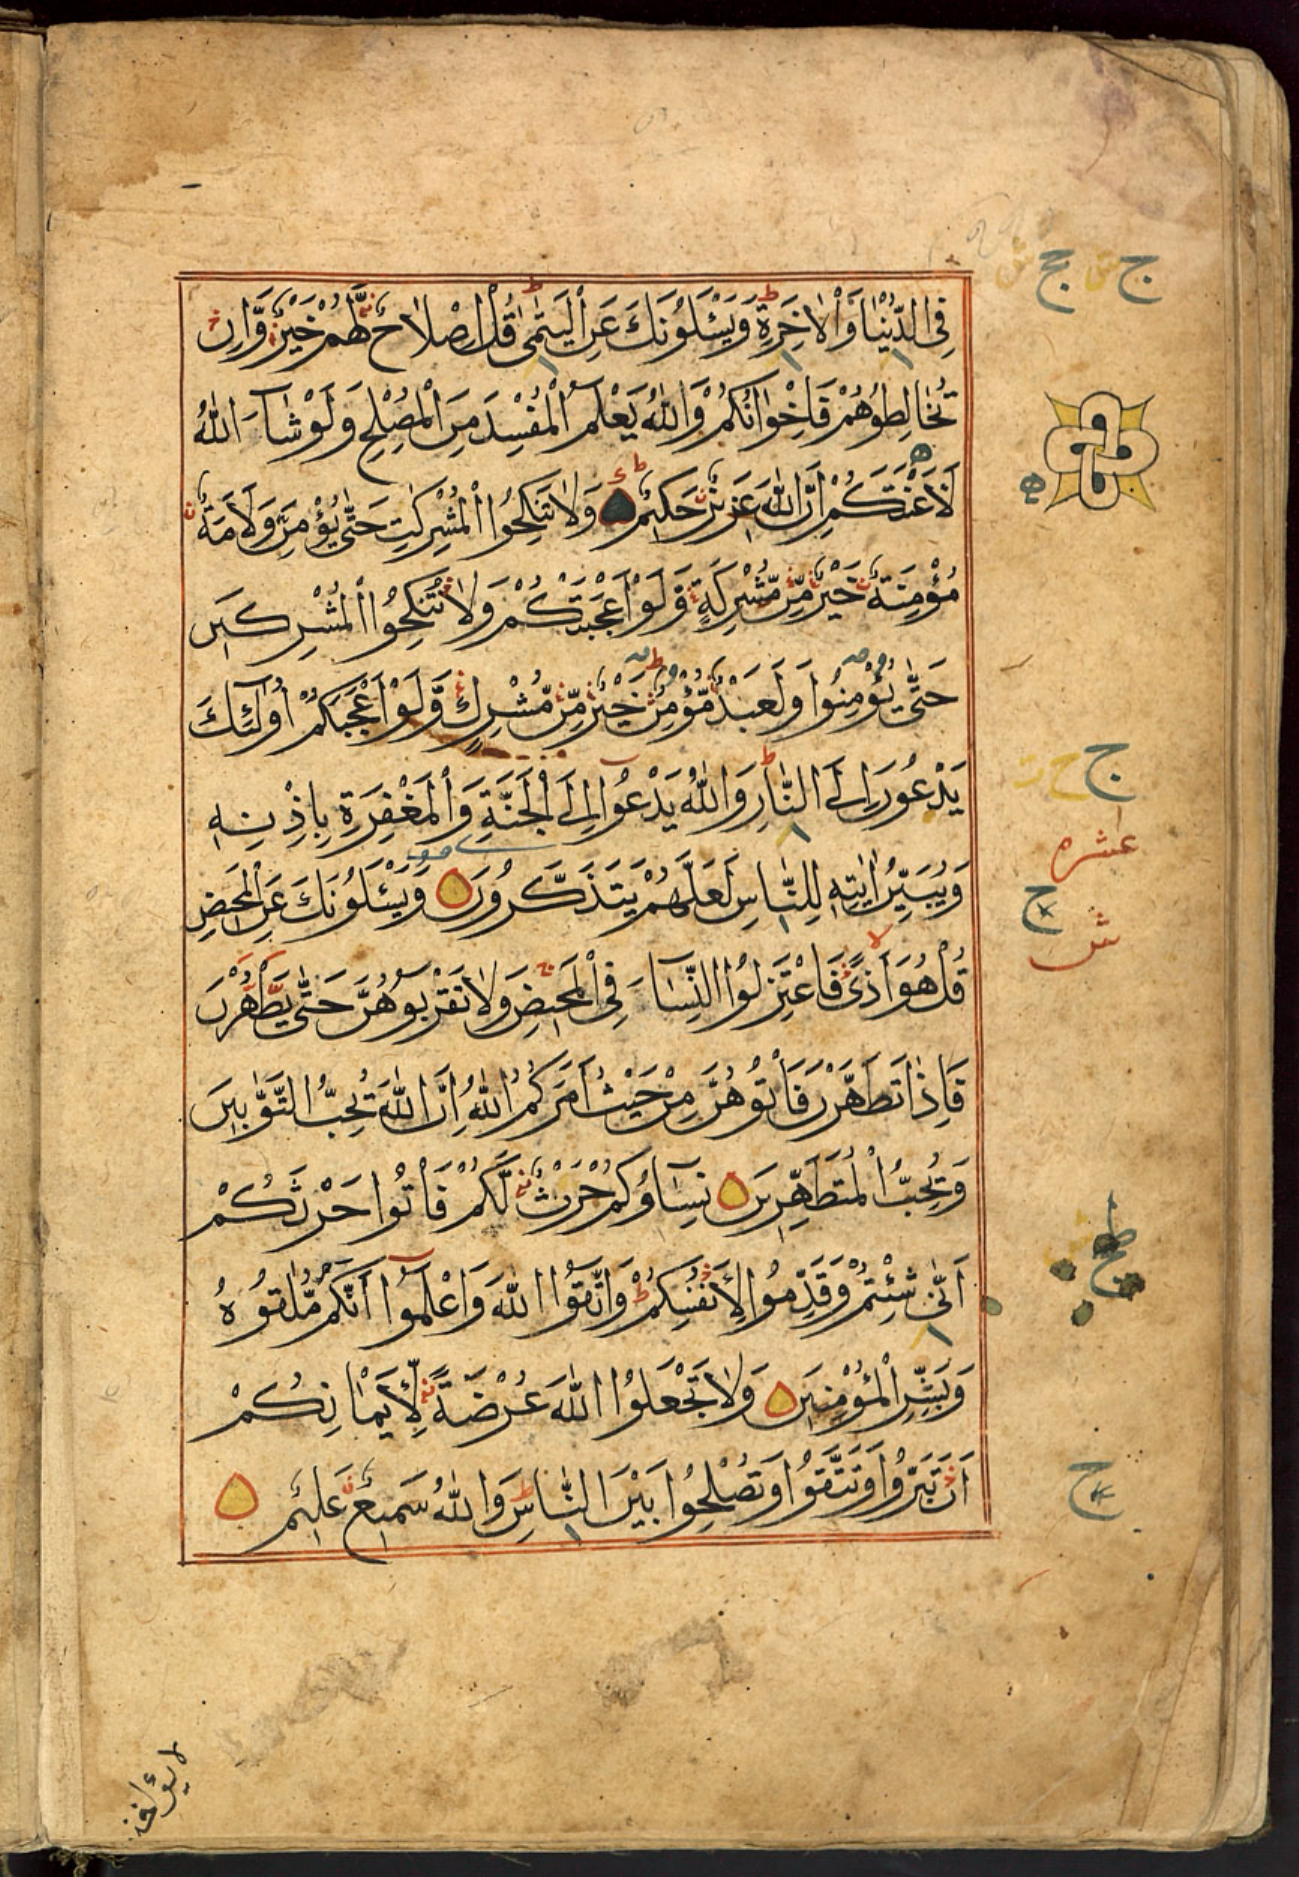 فِي الدُّنْيَا وَالْاٰخِرَةِ ط وَيَسْـَٔلُونَكَ عَنِ الْيَتٰمٰى ط قُلْ اِصْلَاحٌ لَّهُمْ خَيْرٌ وَّاِنْ
تُخَالِطُوْهُمْ فَاِخْوَانُكُمْ وَاللّٰهُ يَعْلَمُ الْمُفْسِدَ مِنَ الْمُصْلِحِ وَلَوْ شَآءَ اللّٰهُ
لَاَعْنَتَكُمْ اِنَّ اللّٰهَ عَزِيْزٌ حَكِيْمٌ وَلَا تَنْكِحُوا الْمُشْرِكٰتِ حَتّٰى يُؤْمِنَّ وَلَاَمَةٌ
مُؤْمِنَةٌ خَيْرٌ مِّنْ مُّشْرِكَةٍ وَّلَوْ اَعْجَبَتْكُمْ وَلَا تُنْكِحُوا الْمُشْرِكِيْنَ
حَتّٰى يُؤْمِنُوْا وَلَعَبْدٌ مُّؤْمِنٌ خَيْرٌ مِّنْ مُّشْرِكٍ وَّلَوْ اَعْجَبَكُمْ اُولٰٓئِكَ
يَدْعُوْنَ اِلَى النَّارِ ط وَاللّٰهُ يَدْعُوْٓا اِلَى الْجَنَّةِ وَالْمَغْفِرَةِ بِاِذْنِهٖ
وَيُبَيِّنُ اٰيٰتِهٖ لِلنَّاسِ لَعَلَّهُمْ يَتَذَكَّرُوْنَ وَيَسْـَٔلُوْنَكَ عَنِ الْمَحِيْضِ
قُلْ هُوَ اَذًى فَاعْتَزِلُوا النِّسَآءَ فِي الْمَحِيْضِ وَلَا تَقْرَبُوْهُنَّ حَتّٰى يَطْهُرْنَ
فَاِذَا تَطَهَّرْنَ فَأْتُوْهُنَّ مِنْ حَيْثُ اَمَرَكُمُ اللّٰهُ اِنَّ اللّٰهَ يُحِبُّ التَّوَّابِيْنَ
وَيُحِبُّ الْمُتَطَهِّرِيْنَ نِسَآؤُكُمْ حَرْثٌ لَّكُمْ فَأْتُوْا حَرْثَكُمْ
اَنّٰى شِئْتُمْ وَقَدِّمُوْا لِاَنْفُسِكُمْ ط وَاتَّقُوا اللّٰهَ وَاعْلَمُوْٓا اَنَّكُمْ مُّلٰقُوْهُ
وَبَشِّرِ الْمُؤْمِنِيْنَ وَلَا تَجْعَلُوا اللّٰهَ عُرْضَةً لِّاَيْمَانِكُمْ
اَنْ تَبَرُّوْا وَتَتَّقُوْا وَتُصْلِحُوْا بَيْنَ النَّاسِ ط وَاللّٰهُ سَمِيْعٌ عَلِيْمٌ
ج ج
ج
عشره
ج
ش
ج
لا يؤاخذ